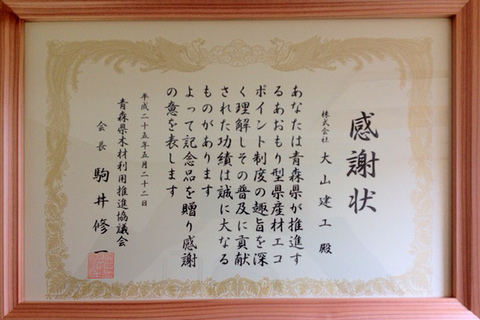 感謝状
株式会社 大山建工 殿
あなたは青森県が推進す
るあおもり型県産材エコ
ポイント制度の趣旨を深
く理解しその普及に貢献
された功績は誠に大なる
ものがあります
よって記念品を贈り感謝
の意を表します
平成二十五年五月二十二日
青森県木材利用推進協議会
会長 駒井修一